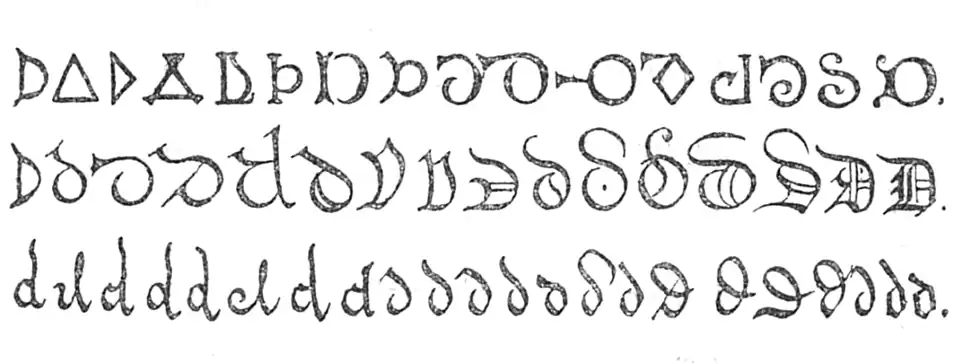 D Δ D D D D D D D D D D D D D D.
D D D D D D D D D D D D D D D D.
d d d d d d d d d d d d d d d d d d d d d d.